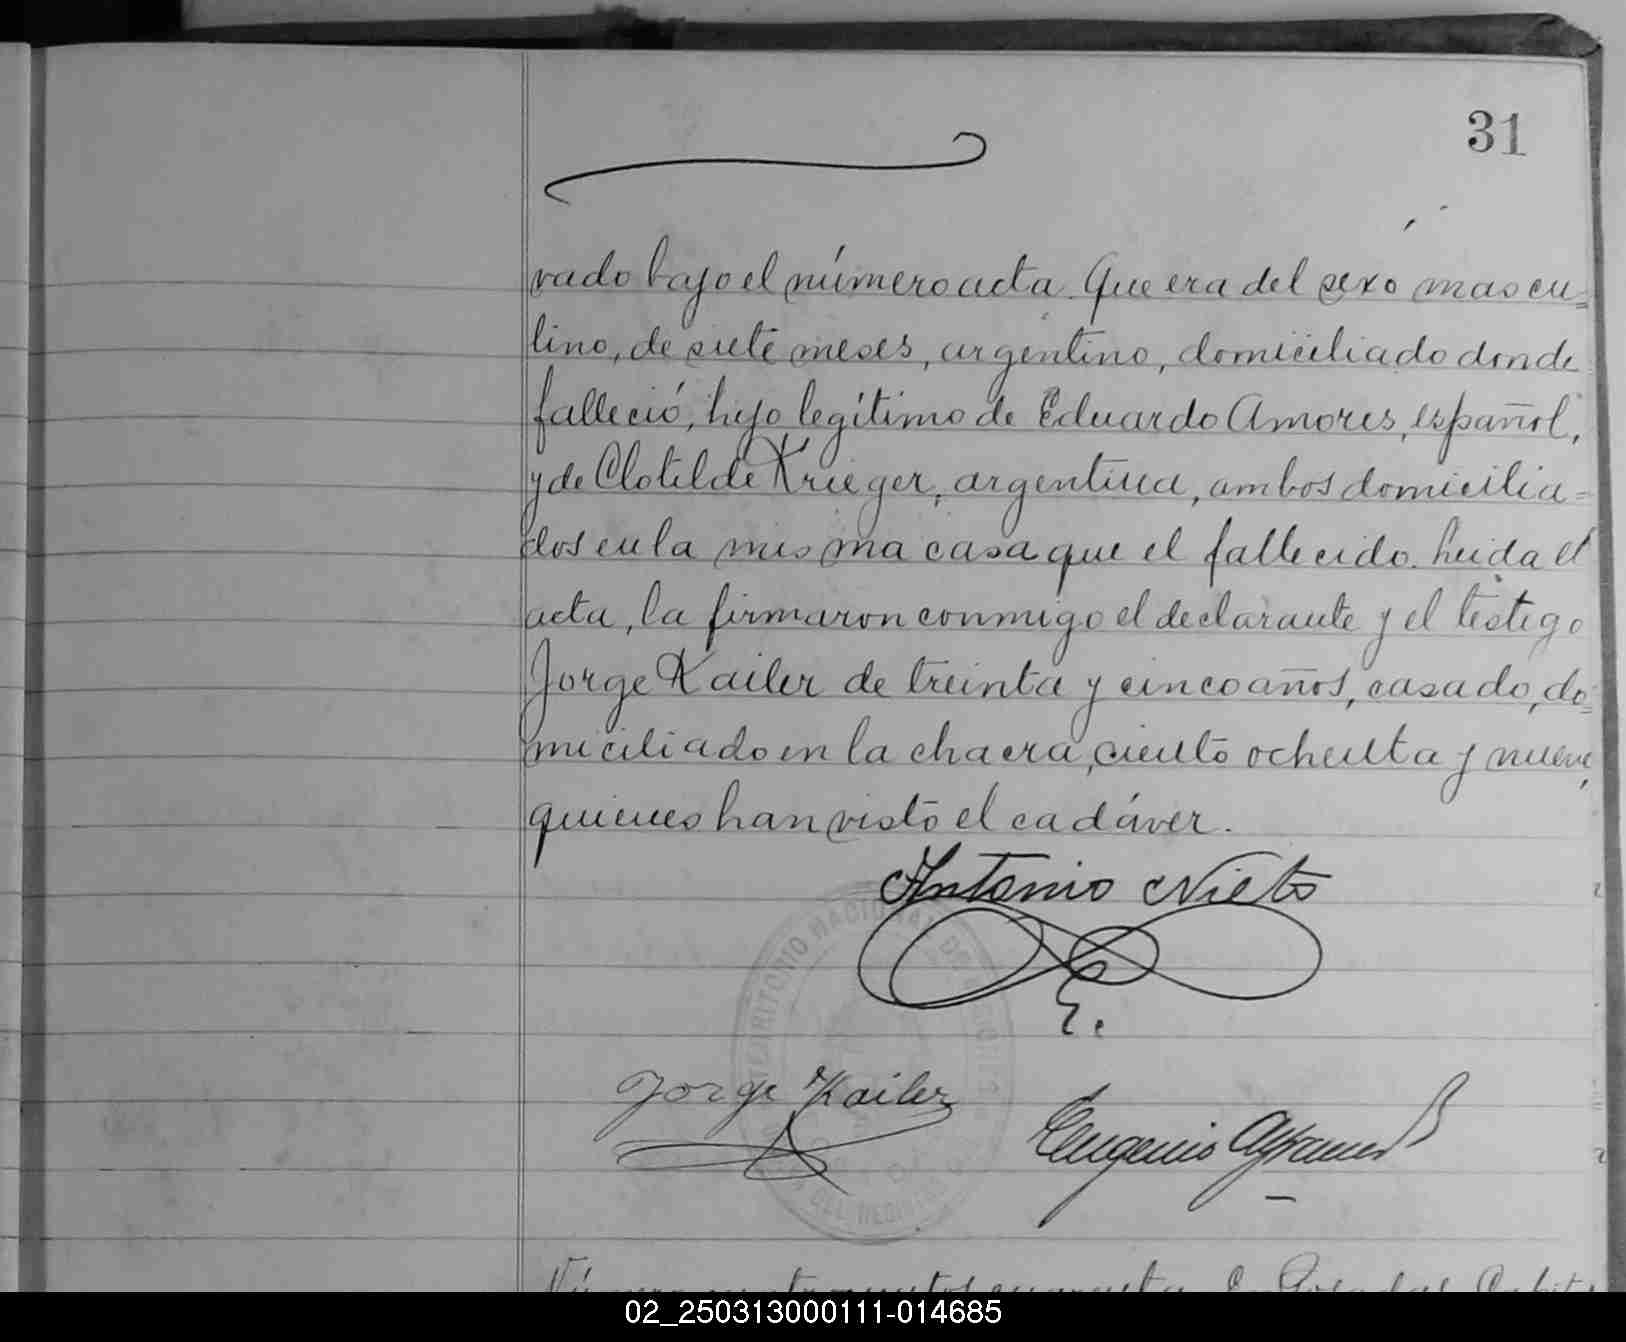 31
vado bajo el número acta. Que era del sexo mascu=
lino, de siete meses, argentino, domiciliado donde
falleció, hijo legítimo de Eduardo Amores, español,
y de Clotilde Krieger, argentina, ambos domicilia=
dos en la misma casa que el fallecido. Leida el
acta, la firmaron conmigo el declarante y el testigo
Jorge Kailer de treinta y cinco años, casado, do=
miciliado en la chacra, ciento ochenta y nueve,
quienes han visto el cadáver.
Antonio Nieto
TERRITORIO NACIONAL DE
DEL REGISTRO
Jorge Kailer
Eugenio
02_250313000111-014685